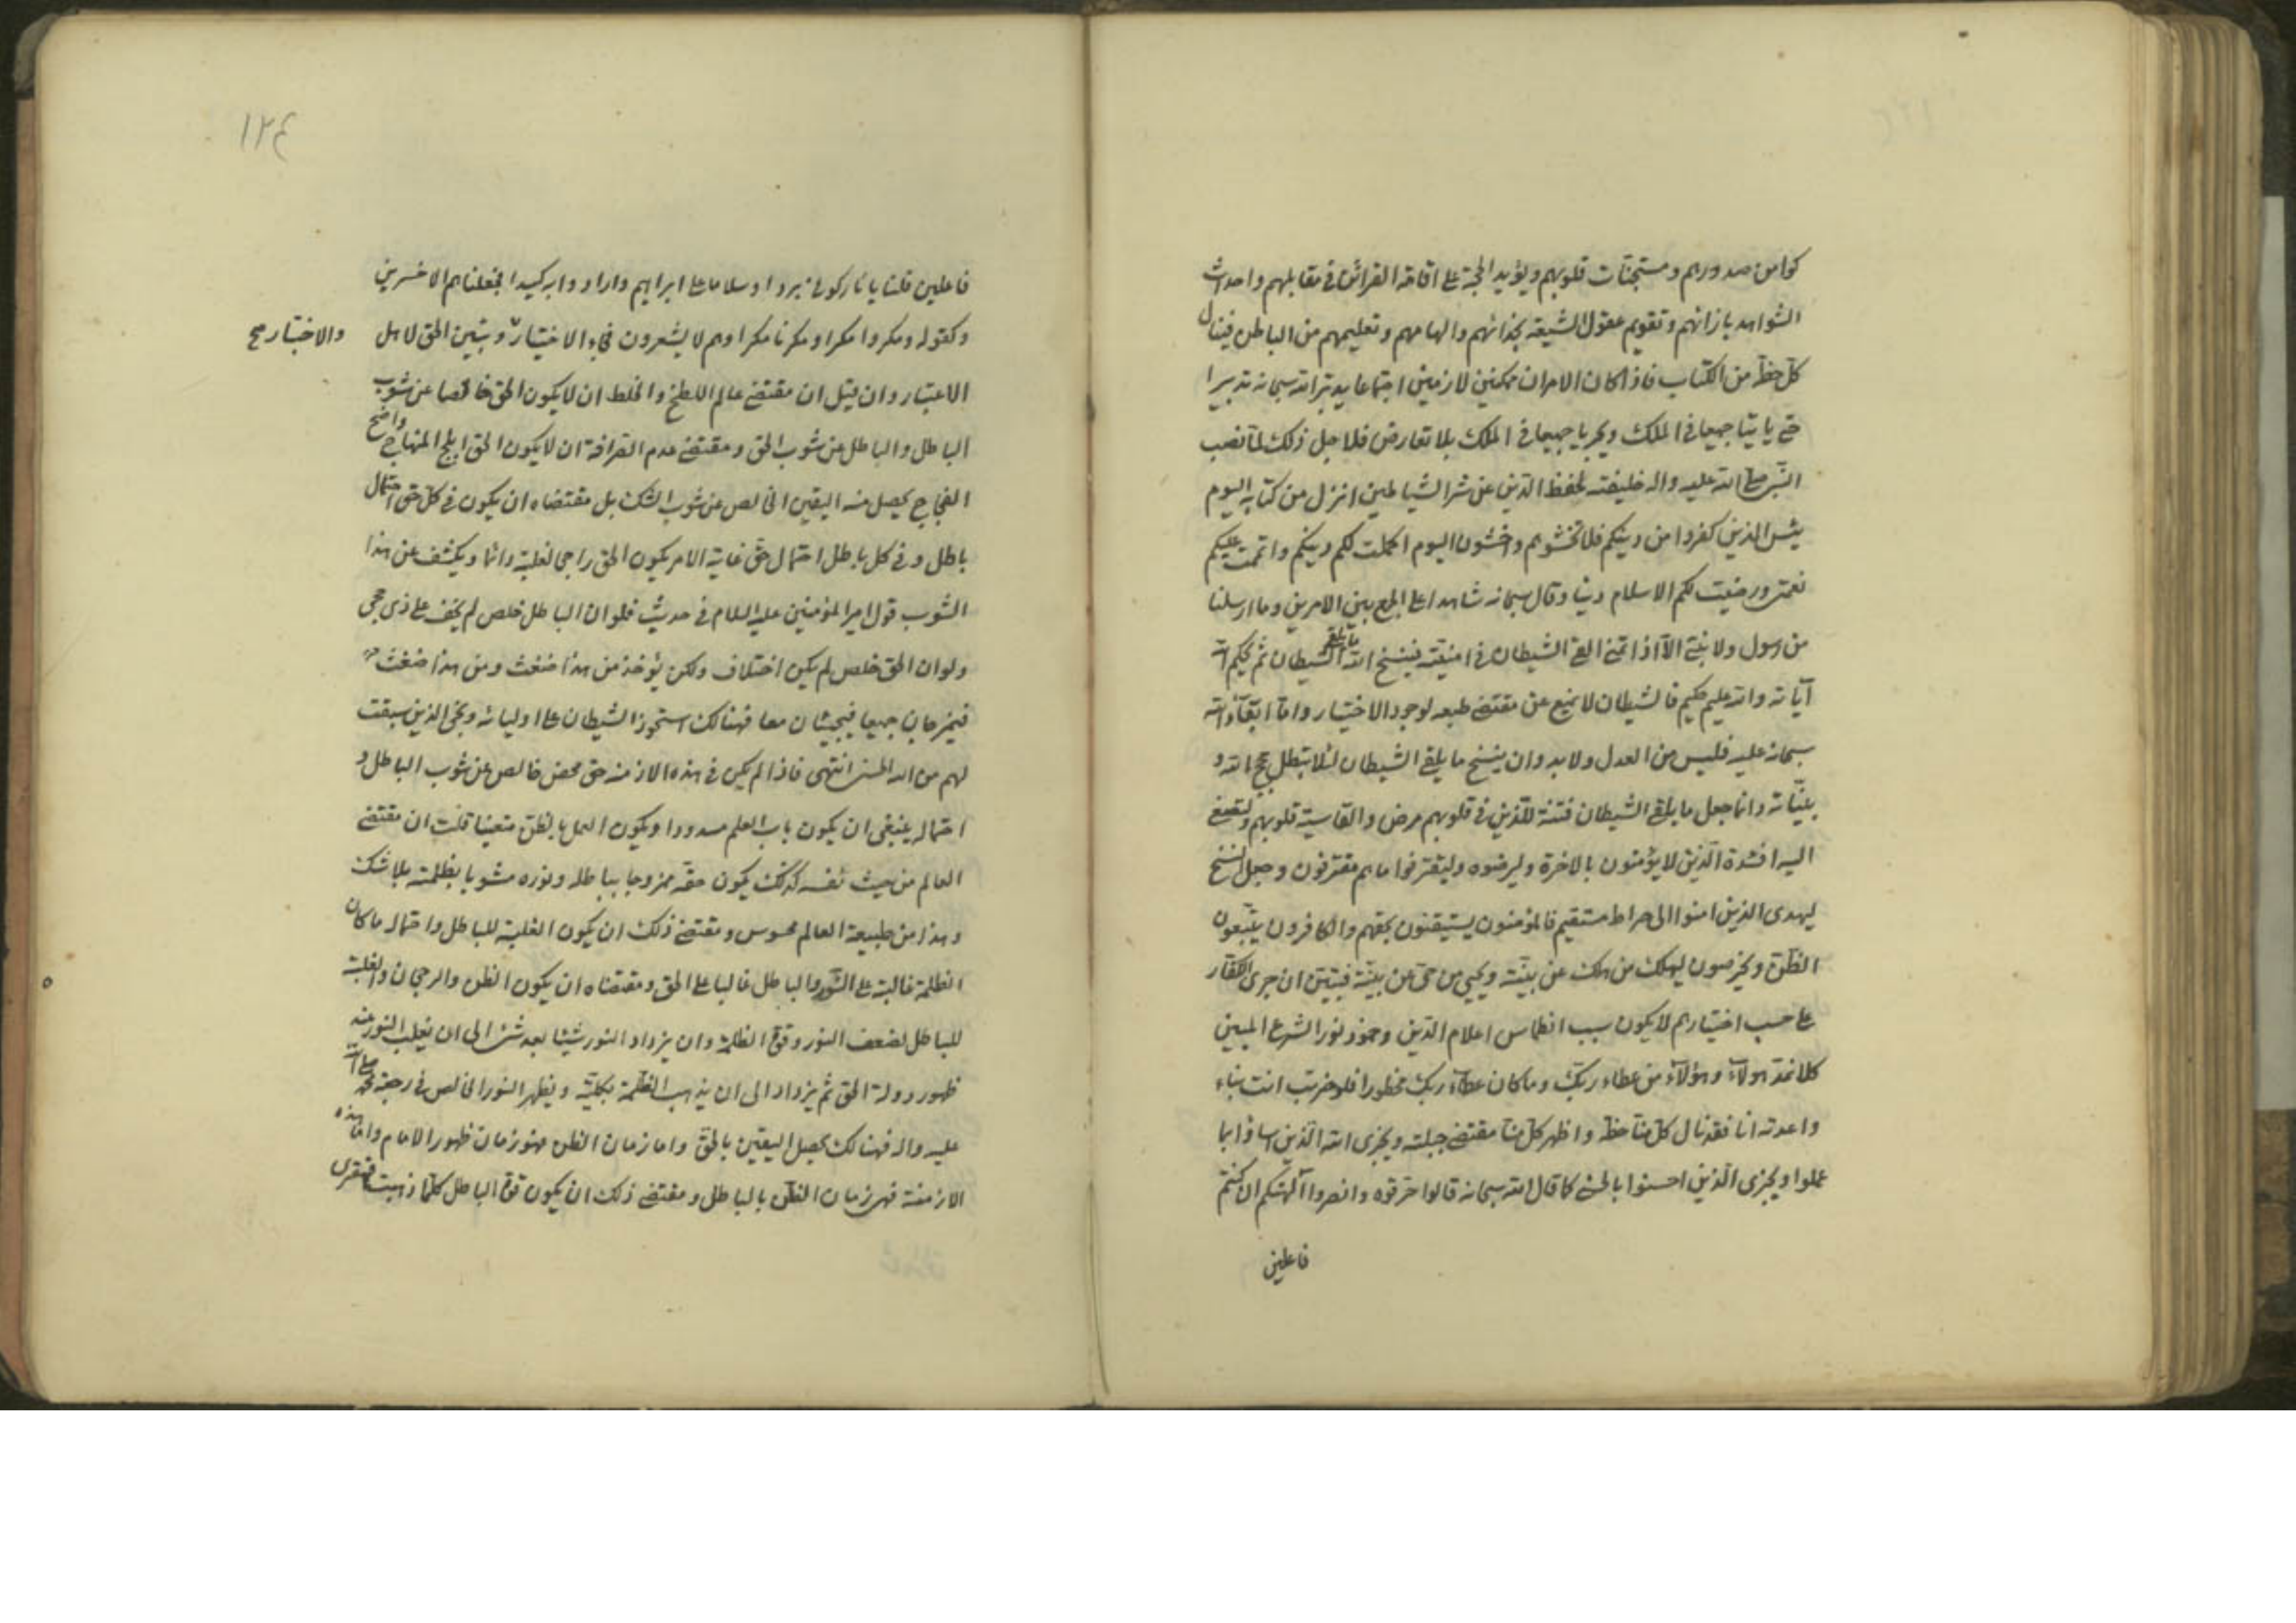 كوامن صدورهم ومستجنات قلوبهم ويؤيد الحجة على اقامة القرائن في مقابلهم واحداث
الشواهد بازائهم وتقويم عقول الشيعة بحذائهم والهامهم وتعليمهم من الباطن فينال
كل حظه من الكتاب فاذا كان الامران ممكنين لازمين اجتماعا يدبر الله سبحانه تدبيرا
حتى ياتيا جميعا في الملك ويجريا جميعا في الملك بلا تعارض فلاجل ذلك لما نصب
النبي صلى الله عليه واله خليفته لحفظ الدين عن شر الشياطين انزل من كتابه اليوم
يئس الذين كفروا من دينكم فلا تخشوهم واخشون اليوم اكملت لكم دينكم واتممت عليكم
نعمتي ورضيت لكم الاسلام دينا وقال سبحانه شاهدا على الجمع بين الامرين وما ارسلنا
من رسول ولا نبي الا اذا تمنى القى الشيطان في امنيته فينسخ الله ما يلقي الشيطان ثم يحكم الله
آياته والله عليم حكيم فالشيطان لا يمنع عن مقتضى طبعه لوجود الاختيار واما ابقاؤ الله
سبحانه عليه فليس من العدل ولا بد وان ينسخ ما يلقي الشيطان لئلا تبطل حجج الله و
بيناته وانما جعل ما يلقي الشيطان فتنة للذين في قلوبهم مرض والقاسية قلوبهم ولتصغى
اليه افئدة الذين لا يؤمنون بالاخرة وليرضوه وليقترفوا ما هم مقترفون وجعل النسخ
ليهدي الذين امنوا الى صراط مستقيم فالمؤمنون يستيقنون بحقهم والكافرون يتبعون
الظن ويخرصون ليهلك من هلك عن بينة ويحيي من حي عن بينة فتبين ان جرى الكفار
على حسب اختيارهم لا يكون سبب انطماس اعلام الدين وخمود نور الشرع المبين
كلا نمد هولآء وهؤلآء من عطاء ربك وما كان عطآء ربك محظورا فلو خربت انت بناء
واعدته انا فقد نال كل منا حظه واظهر كل منا مقتضى جبلته ويجزى الله الذين اساؤا بما
عملوا ويجزى الذين احسنوا بالحسنى كما قال الله سبحانه قالوا حرقوه وانصروا آلهتكم ان كنتم
فاعلين
١٢٤
فاعلين قلنا يا نار كوني بردا وسلاما على ابراهيم وارادوا به كيدا فجعلناهم الاخسرين
وكقوله ومكروا مكرا ومكرنا مكرا وهم لا يشعرون فجاء الاختيار وتبين الحق لاهل
والاختبار صح
الاعتبار وان قيل ان مقتضى عالم اللطخ والخلط ان لا يكون الحق خالصا عن شوب
الباطل والباطل عن شوب الحق ومقتضى عدم القرافة ان لا يكون الحق ابلج المنهاج واضح
الفجاج يحصل منه اليقين الخالص عن شوب الشك بل مقتضاه ان يكون في كل حق احتمال
باطل وفي كل باطل احتمال حق غاية الامر يكون الحق راجحا لغلبته دائما ويكشف عن هذا
الشوب قول امير المؤمنين عليه السلام في حديث فلو ان الباطل خلص لم يخف على ذي حجى
ولو ان الحق خلص لم يكن اختلاف ولكن يؤخذ من هذا ضغث ومن هذا ضغث
فيمزجان جميعا فيجيئان معا فهنالك استحوذ الشيطان على اوليائه ونجى الذين سبقت
لهم من الله الحسنى انتهى فاذا لم يكن في هذه الازمنة حق محض خالص عن شوب الباطل و
احتماله ينبغي ان يكون باب العلم مسدودا ويكون العمل بالظن متعينا قلت ان مقتضى
العالم من حيث نفسه كذلك يكون حقه ممزوجا بباطله ونوره مشوبا بظلمته بلا شك
وهذا من طبيعة العالم محسوس ومقتضى ذلك ان يكون الغلبة للباطل واحتماله ما كان
الظلمة غالبة على النور والباطل غالبا على الحق ومقتضاه ان يكون الظن والرجحان والغلبة
للباطل لضعف النور وقوة الظلمة وان يزداد النور شيئا بعد شئ الى ان يغلب النور عند
ظهور دولة الحق ثم يزداد الى ان يذهب الظلمة بكليته ويظهر النور الخالص في رجعة محمد صلى الله
عليه واله فهنالك يحصل اليقين بالحق واما زمان الظن فهو زمان ظهور الامام واما هذه
الازمنة فهي زمان الظن بالباطل ومقتضى ذلك ان يكون قوة الباطل كلما ذهبت